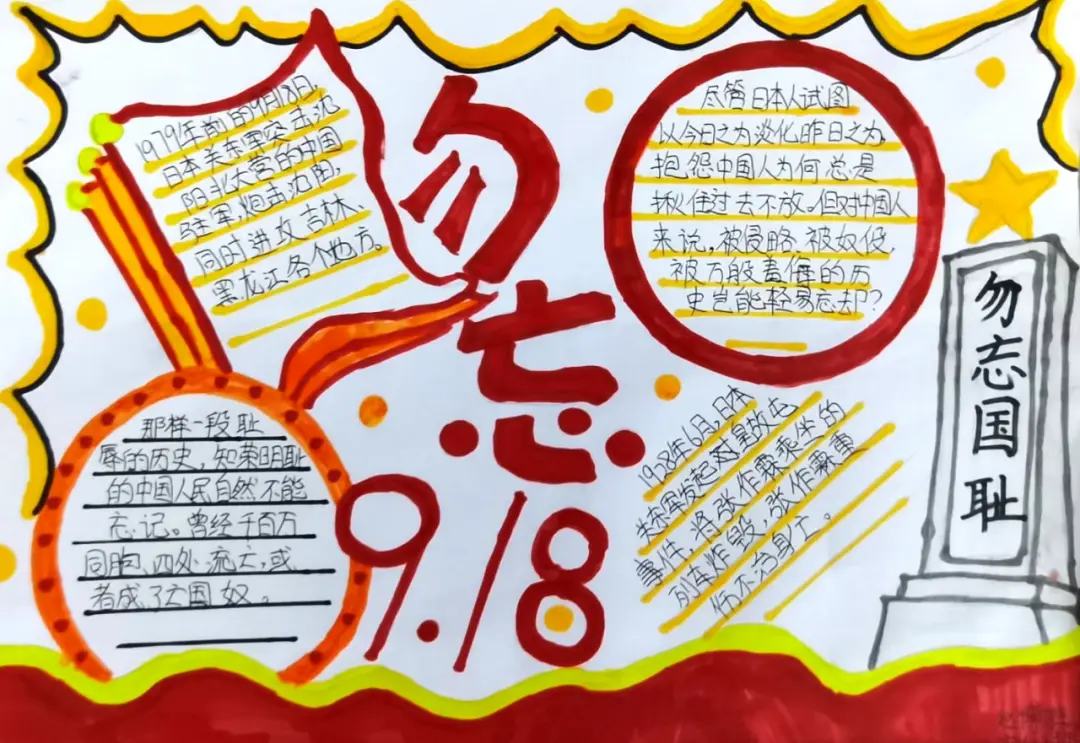 197年前的9月18日,
日本关东军突击沈
阳北大营的中国
驻军,炮击沈阳,
同时进攻吉林、
黑龙江各个地方。
勿
忘
9.18
尽管日本人试图
以今日之为淡化昨日之为,
抱怨中国人为何总是
揪住过去不放。但对中国人
来说,被侵略、被奴役,
被万般羞侮的历
史岂能轻易忘却?
那样一段耻
辱的历史,知荣明耻
的中国人民自然不能
忘记。曾经千百万
同胞,四处流亡,或
者成了亡国奴。
1928年6月,日本
关东军发起对皇故屯
事件,将张作霖乘坐的
列车炸毁,张作霖重
伤不治身亡。
勿忘国耻